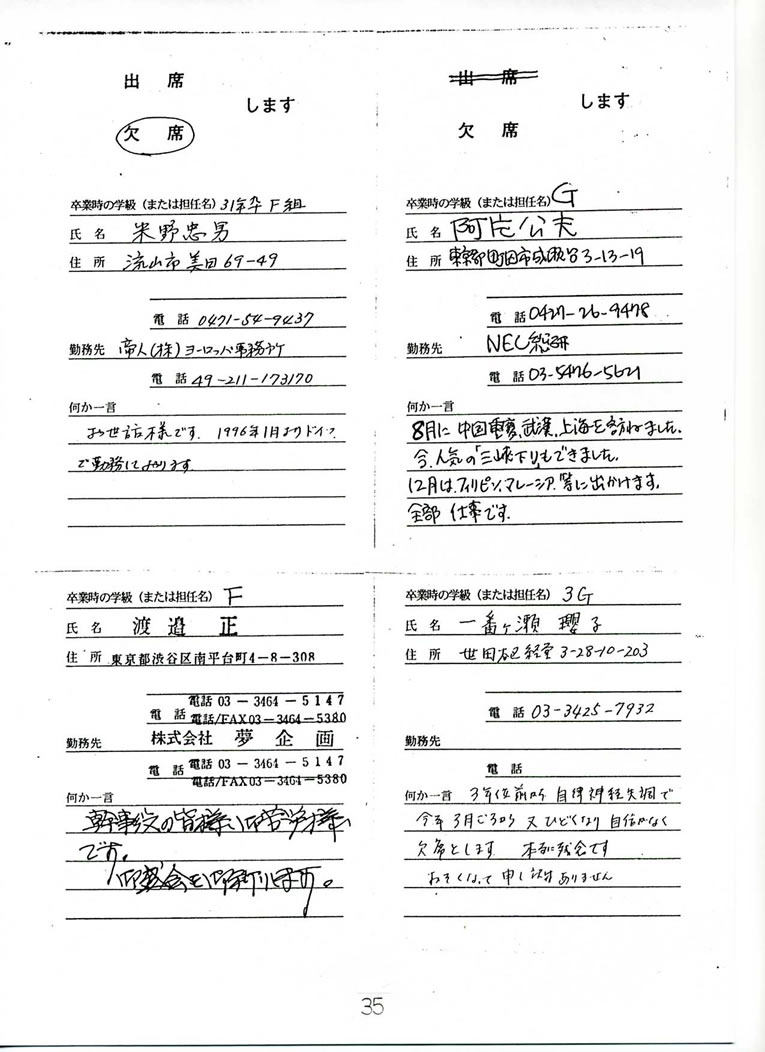 出 席
します
欠 席
卒業時の学級(または担任名) 31年卒 F組
氏 名 米野忠男
住 所 流山市美田69-49
電 話 0471-54-9437
勤務先 帝人(株)ヨーロッパ事務所
電 話 49-211-173170
何か一言
お世話様です. 1996年1月よりドイツ
で勤務しております
出 席
します
欠 席
卒業時の学級(または担任名) G
氏 名 阿 公夫
住 所 東京都町田市成瀬台3-13-19
電 話 0427-26-9478
勤務先 NEC総研
電 話 03-5476-5621
何か一言
8月に中国重慶,武漢,上海を訪ねました.
今,人気の「三峡下り」もできました.
12月は,フィリピン,マレーシア,等に出かけます.
全部 仕事です.
卒業時の学級(または担任名) F
氏 名 渡 邉 正
住 所 東京都渋谷区南平台町4-8-308
電話 03-3464-5147
電 話 電話/FAX03-3464-5380
勤務先 株式会社 夢 企 画
電話 03-3464-5147
電 話 電話/FAX03-3464-5380
何か一言
幹事役の皆様、御苦労様
です。
御盛会を御祈りします。
卒業時の学級(または担任名) 3G
氏 名 一番ヶ瀬 瓔子
住 所 世田谷区経堂3-28-10-203
電 話 03-3425-7932
勤務先
電 話
何か一言 3年位前から 自律神経失調で
今年3月ごろから 又ひどくなり 自信がなく
欠席とします 本当に残念です
おそくなって申し訳ありません
35